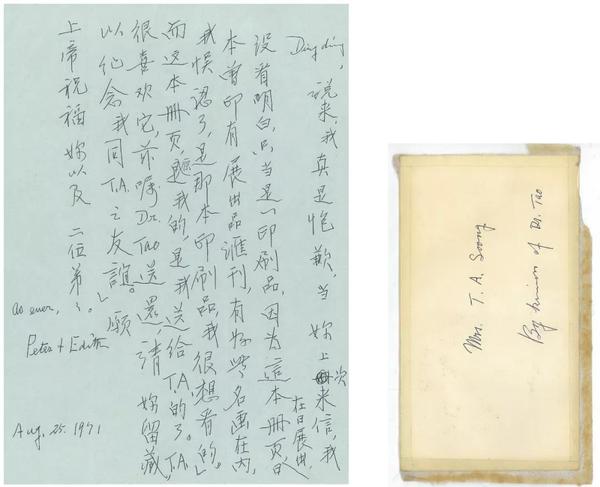 Dingding,
说来,我真是抱歉,当妳上次来信,我
没有明白,只当是一印刷品,因为這本册頁,曾在日展出,
本曾印有展出品滙刊,有好些名画在内,
我悮认了,是那本印刷品,我很想看的。
而这本册頁,是我的,是我送给T.A.的了。T.A.
很喜欢它,并嘱Dr. Tao送還,请妳留藏,
以纪念我同T.A.之友誼。願
上帝祝福妳以及二位弟々。
as ever,
Peter + Edith
Aug. 25. 1971
Mrs. T. A. Soong
By kindness of Dr. Tao